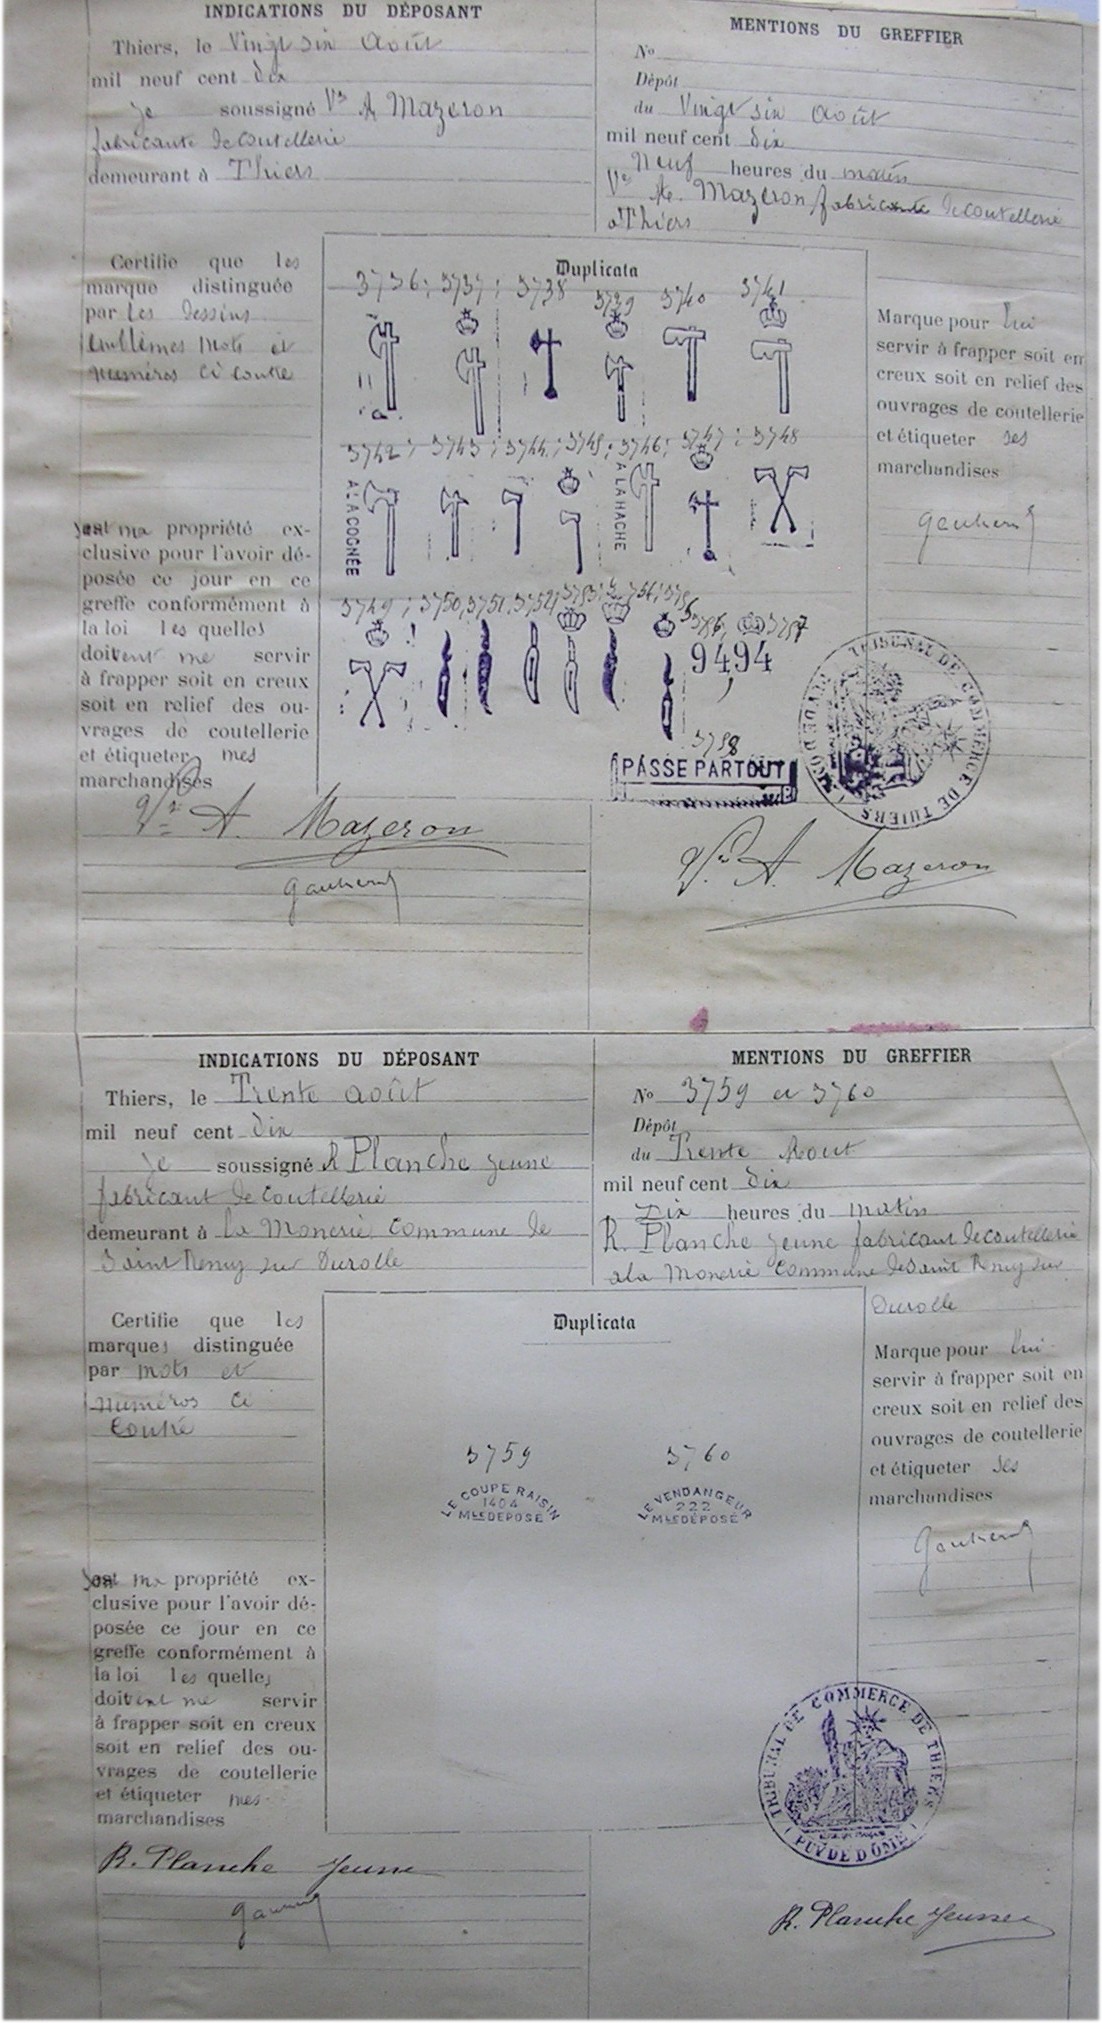 INDICATIONS DU DÉPOSANT
Thiers, le Vingt six Août
mil neuf cent dix
je soussigné Vve A Mazeron
fabricante de coutellerie
demeurant à Thiers
MENTIONS DU GREFFIER
No
Dépôt
du Vingt six Août
mil neuf cent dix
Neuf heures du matin
Vve A. Mazeron fabricante de coutellerie
à Thiers
Certifie que les
marque distinguée
par les dessins
emblèmes mots et
numéros ci contre
sont ma propriété ex-
clusive pour l'avoir dé-
posée ce jour en ce
greffe conformément à
la loi les quelles
doivent me servir
à frapper soit en creux
soit en relief des ou-
vrages de coutellerie
et étiqueter mes
marchandises
Vve A. Mazeron
Duplicata
3736; 3737; 3738 3739 3740 3741
3742; 3743; 3744; 3745; 3746; 3747; 3748
A LA COGNÉE
A LA HACHE
3749; 3750, 3751, 3752,
3757
9494
3758
PASSE PARTOUT
Marque pour lui
servir à frapper soit en
creux soit en relief des
ouvrages de coutellerie
et étiqueter ses
marchandises
TRIBUNAL DE COMMERCE DE THIERS
PUY DE DÔME
Vve A. Mazeron
INDICATIONS DU DÉPOSANT
Thiers, le Trente août
mil neuf cent dix
je soussigné R Planche jeune
fabricant de coutellerie
demeurant à la Monerie Commune de
Saint Remy sur Durolle
MENTIONS DU GREFFIER
No 3759 et 3760
Dépôt
du Trente Aout
mil neuf cent dix
Dix heures du matin
R. Planche jeune fabricant de coutellerie
à la Monerie Commune de Saint Remy sur
Durolle
Certifie que les
marques distinguée
par mots et
numéros ci
contre
sont ma propriété ex-
clusive pour l'avoir dé-
posée ce jour en ce
greffe conformément à
la loi les quelles
doivent me servir
à frapper soit en creux
soit en relief des ou-
vrages de coutellerie
et étiqueter mes
marchandises
R. Planche Jeune
Duplicata
3759 3760
LE COUPE RAISIN
1404
Mles DEPOSE
LE VENDANGEUR
222
Mles DÉPOSÉ
Marque pour lui
servir à frapper soit en
creux soit en relief des
ouvrages de coutellerie
et étiqueter ses
marchandises
TRIBUNAL DE COMMERCE DE THIERS
( PUY DE DÔME )
R. Planche Jeune